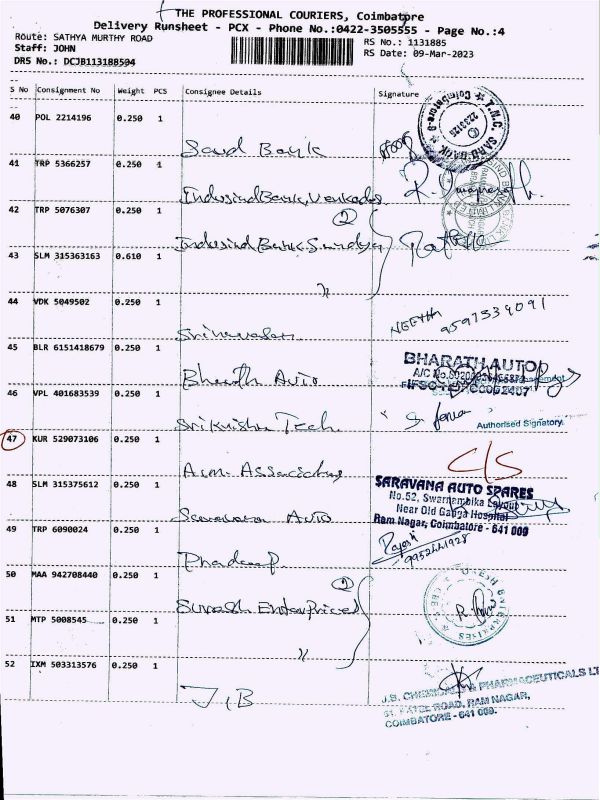 THE PROFESSIONAL COURIERS, Coimbatore
Delivery Runsheet - PCX - Phone No.:0422-3505555 - Page No.:4
Route: SATHYA MURTHY ROAD
Staff: JOHN
DRS No.: DCJB113188504
RS No.: 1131885
RS Date: 09-Mar-2023
S No Consignment No Weight PCS Consignee Details Signature
40 POL 2214196 0.250 1
Saud Bank
41 TRP 5366257 0.250 1
Indusind Bank, Venkades
42 TRP 5076307 0.250 1
2
Indusind Bank
43 SLM 315363163 0.610 1
"
44 VDK 5049502 0.250 1
NEETHA 9597339091
Srinivasan
45 BLR 6151418679 0.250 1
BHARATH AUTO
Bharath Auto
46 VPL 401683539 0.250 1
Srikrishna Tech
Authorised Signatory.
47 KUR 529073106 0.250 1
C/S
48 SLM 315375612 0.250 1
SARAVANA AUTO SPARES
No.52, Swarnambika Layout
Near Old Ganga Hospital
Ram Nagar, Coimbatore - 641 009
Saravana Auto
49 TRP 6090024 0.250 1
Rajesh
9952441928
Pradeep
50 MAA 942708440 0.250 1
2
Suresh Enterprises
51 MTP 5008545 0.250 1
"
52 IXM 503313576 0.250 1
J.B
J.B. CHEMICALS & PHARMACEUTICALS LT
61, PATEL ROAD, RAM NAGAR,
COIMBATORE - 641 009.